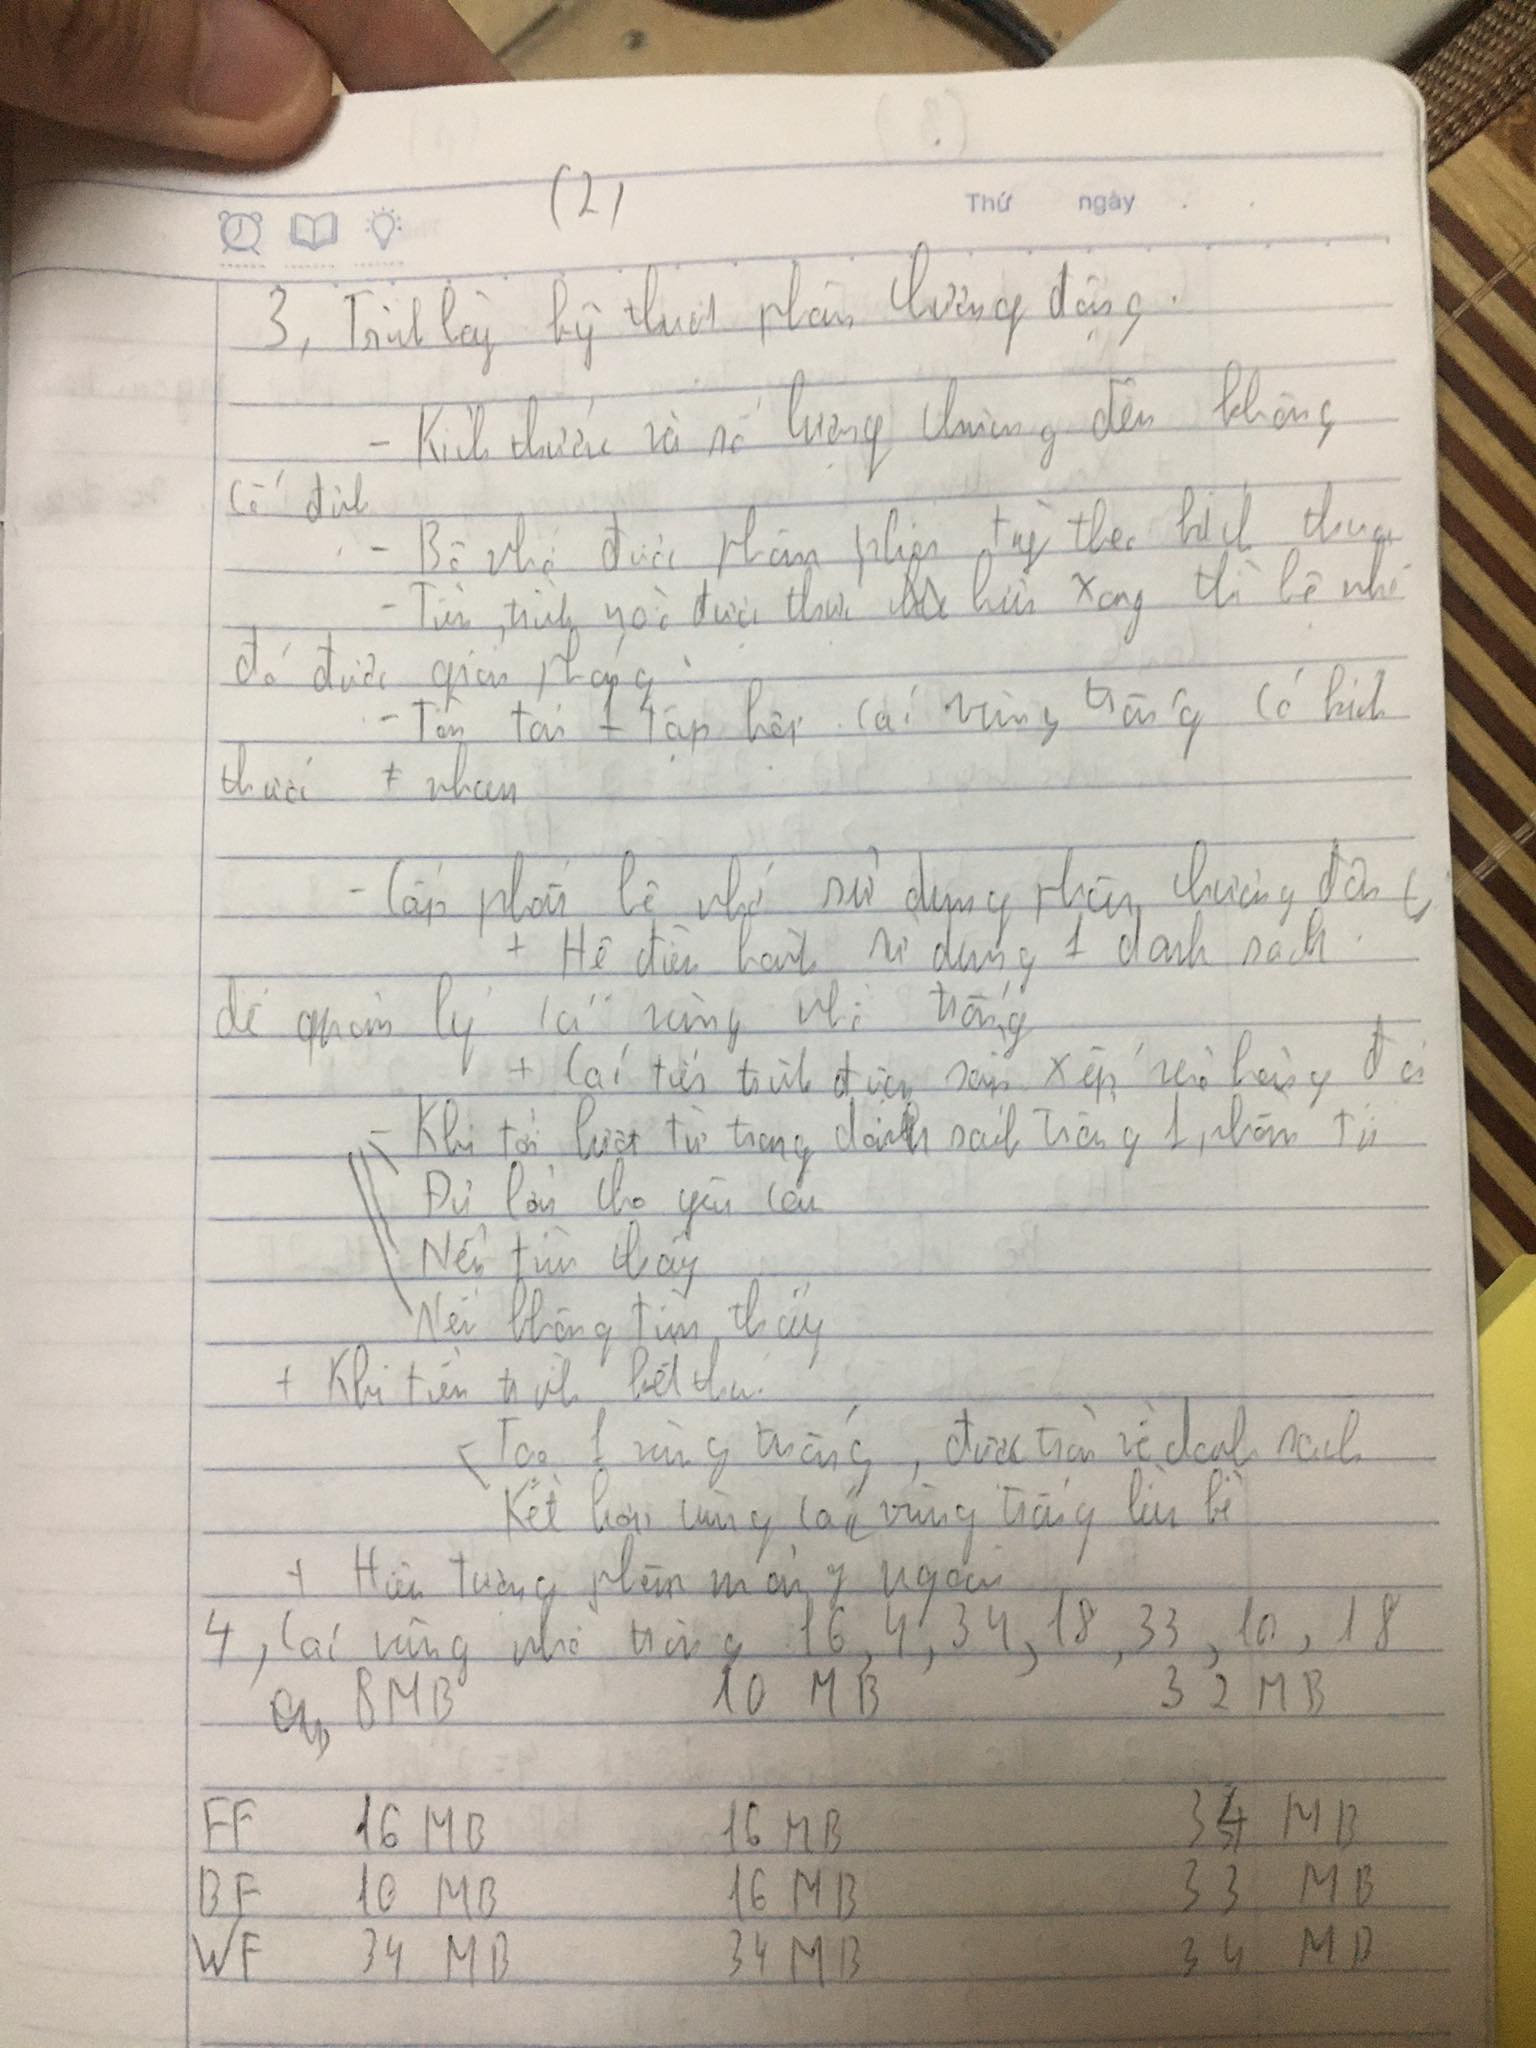 (2)
Thứ ngày
3, Trình bày kỹ thuật phân chương động.
- Kích thước và số lượng chương đều không
cố định
- Bộ nhớ được phân phối tuỳ theo kích thước
- Tiến trình nào được thực hiện xong thì bộ nhớ
đó được giải phóng
- Tồn tại 1 tập hợp các vùng trống có kích
thước ≠ nhau
- Cấp phát bộ nhớ sử dụng phân chương động
+ Hệ điều hành sử dụng 1 danh sách
để quản lý các vùng nhớ trống
+ Các tiến trình được sắp xếp vào hàng đợi
- Khi tới lượt từ trong danh sách trống 1 phần tử
Đủ lớn cho yêu cầu
Nếu tìm thấy
Nếu không tìm thấy
+ Khi tiến trình kết thúc
Tạo 1 vùng trống, được trả về danh sách
Kết hợp cùng các vùng trống liền kề
+ Hiện tượng phân mảng ngoài
4, Các vùng nhớ trống 16, 4, 34, 18, 33, 10, 18
a, 8MB 10 MB 32 MB
FF 16 MB 16 MB 34 MB
BF 10 MB 16 MB 33 MB
WF 34 MB 34 MB 34 MB